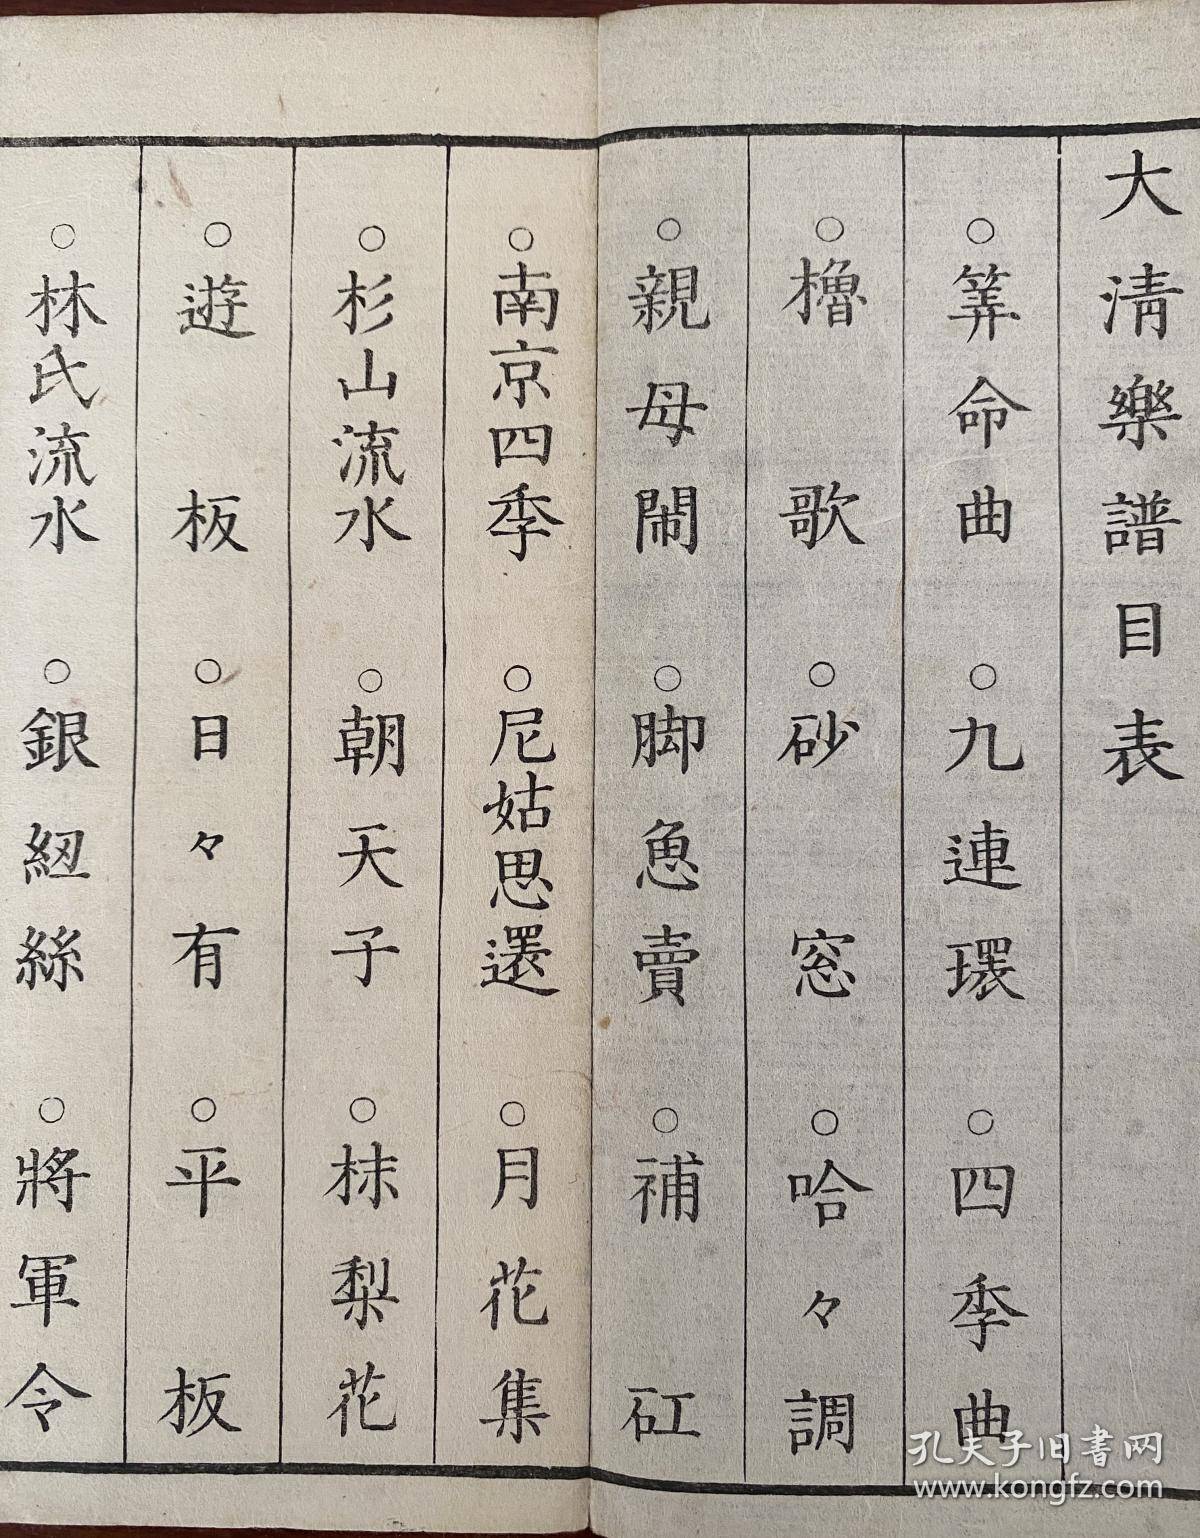 大清樂譜目表
○筭命曲 ○九連環 ○四季曲
○櫓歌 ○砂窓 ○哈々調
○親母鬧 ○脚魚賣 ○補矼
○南京四季 ○尼姑思還 ○月花集
○杉山流水 ○朝天子 ○枺梨花
○遊板 ○日々有 ○平板
○林氏流水 ○銀紐絲 ○將軍令
孔夫子旧书网
www.kongfz.com